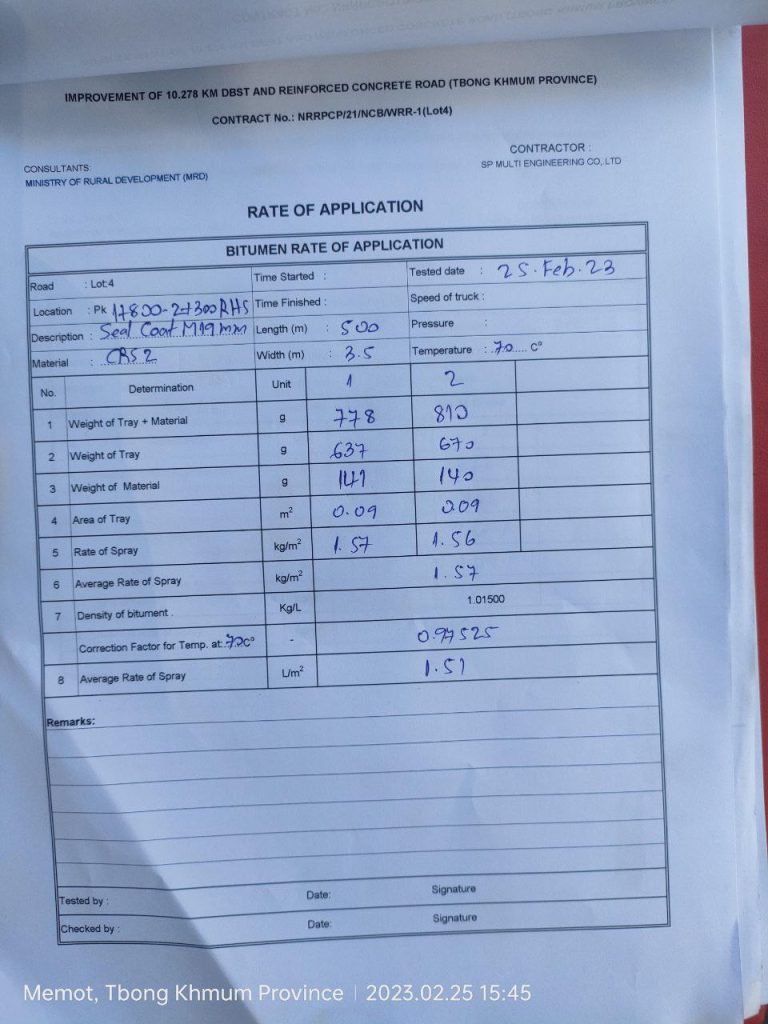 IMPROVEMENT OF 10.278 KM DBST AND REINFORCED CONCRETE ROAD (TBONG KHMUM PROVINCE)
CONTRACT No.: NRRPCP/21/NCB/WRR-1(Lot4)
CONSULTANTS:
MINISTRY OF RURAL DEVELOPMENT (MRD)
CONTRACTOR :
SP MULTI ENGINEERING CO,.LTD
RATE OF APPLICATION
BITUMEN RATE OF APPLICATION
Road : Lot:4 Time Started : Tested date : 25. Feb. 23
Location : Pk 1+800-2+300RHS Time Finished : Speed of truck :
Description : Seal Coat M19mm Length (m) : 500 Pressure :
Material : CRS2 Width (m) : 3.5 Temperature : 70.... C°
No. Determination Unit 1 2
1 Weight of Tray + Material g 778 810
2 Weight of Tray g 637 670
3 Weight of Material g 141 140
4 Area of Tray m² 0.09 0.09
5 Rate of Spray kg/m² 1.57 1.56
6 Average Rate of Spray kg/m² 1.57
7 Density of bitument . Kg/L 1.01500
Correction Factor for Temp. at: 70C° - 0.97525
8 Average Rate of Spray L/m² 1.51
Remarks:
Tested by : Date: Signature
Checked by : Date: Signature
Memot, Tbong Khmum Province | 2023.02.25 15:45